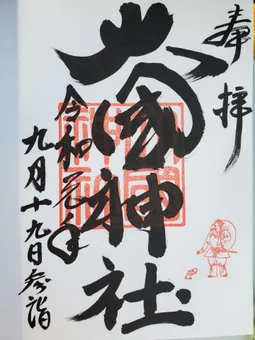 奉拝
神社
令和元年
九月十九日参詣